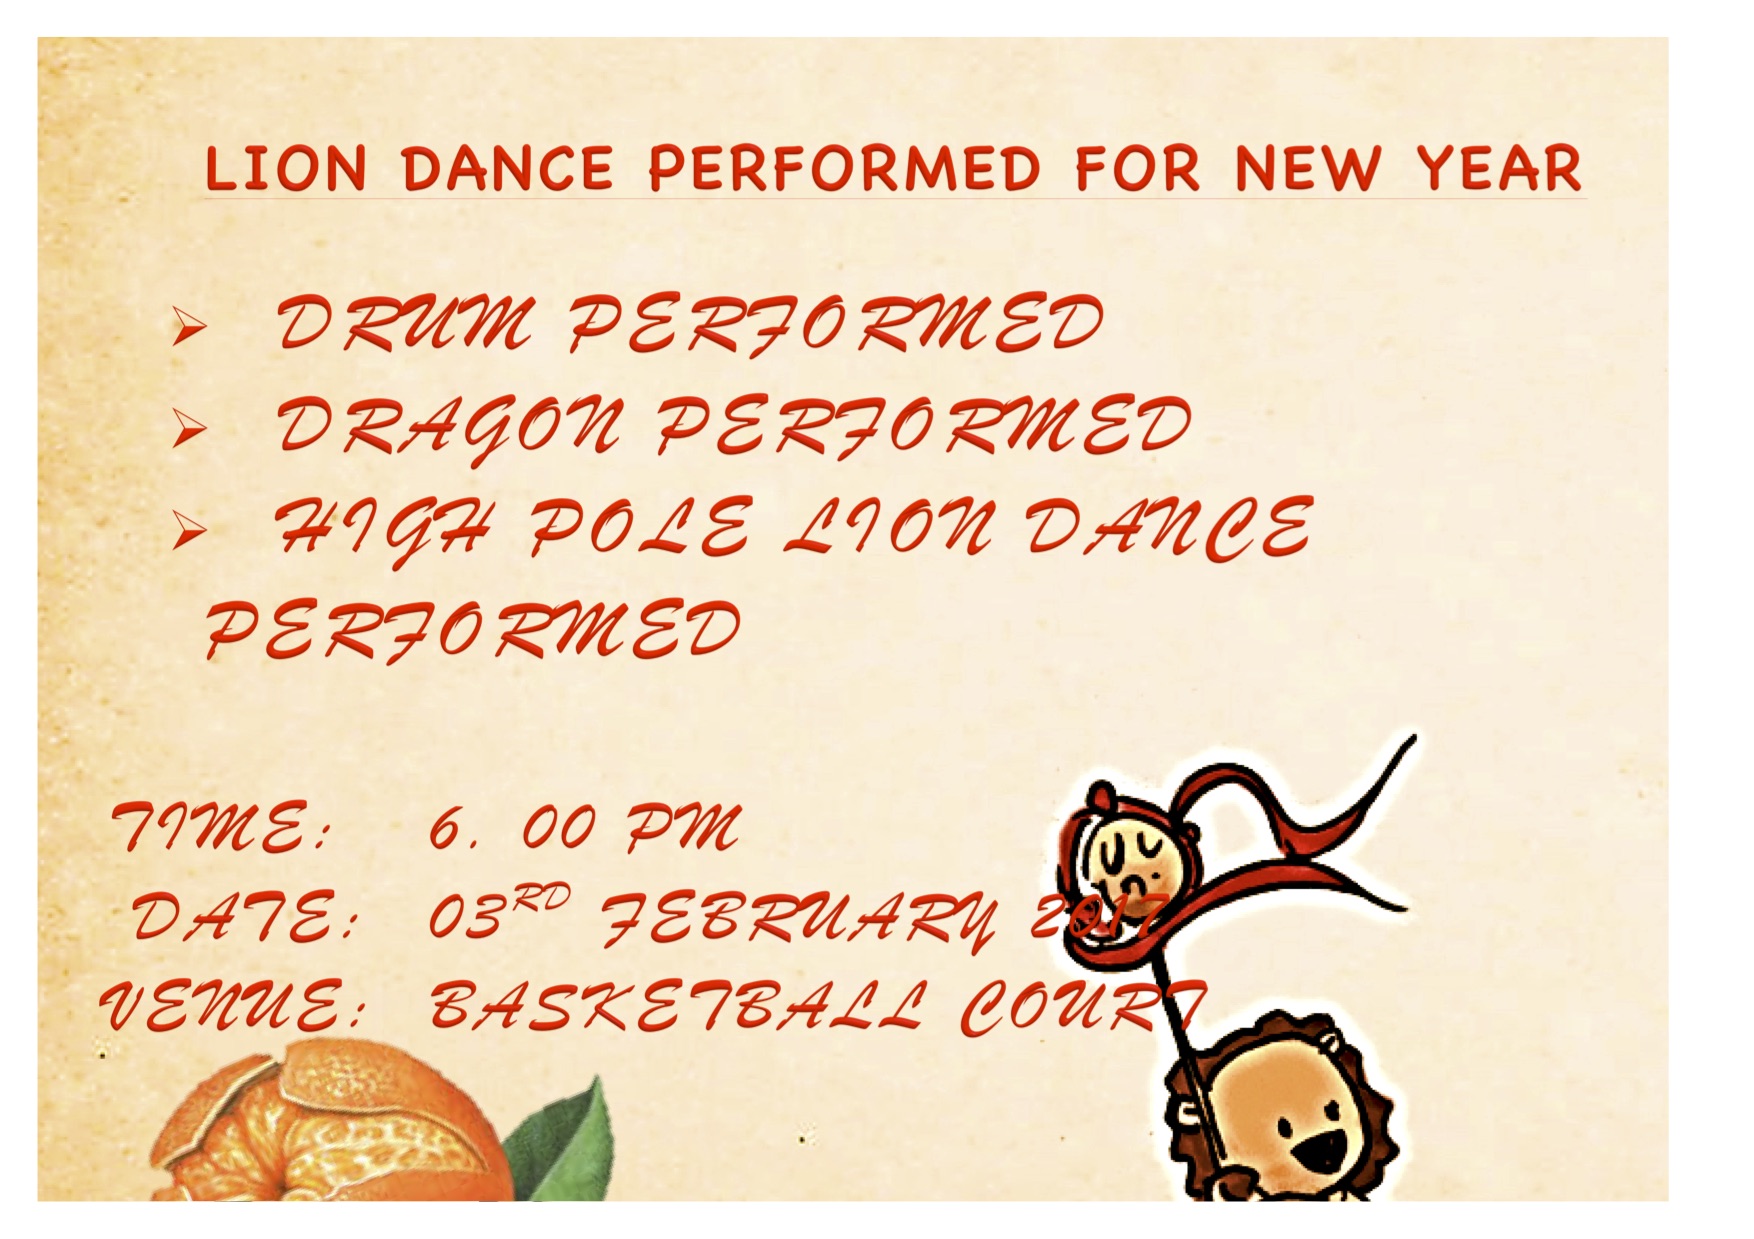 LION DANCE PERFORMED FOR NEW YEAR
➢ DRUM PERFORMED
➢ DRAGON PERFORMED
➢ HIGH POLE LION DANCE
PERFORMED
TIME: 6. 00 PM
DATE: 03RD FEBRUARY 2017
VENUE: BASKETBALL COURT